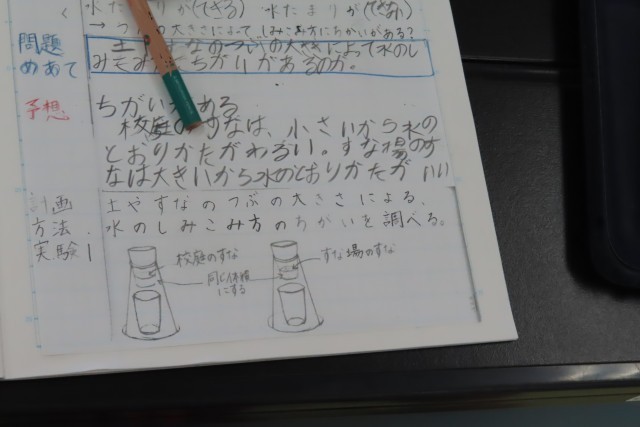 水たまりが(できる) 水たまりが
→つぶの大きさによってしみこみ方にちがいがある?
問題
めあて
土やすなのつぶの大きさによって水のし
みこみ方にちがいがあるのか。
予想
ちがいがある
校庭のすなは、小さいから水の
とおりかたがわるい。すな場のす
なは大きいから水のとおりかたがいい
計画
方法
実験1
土やすなのつぶの大きさによる、
水のしみこみ方のちがいを調べる。
校庭のすな
同じ体積
にする
すな場のすな